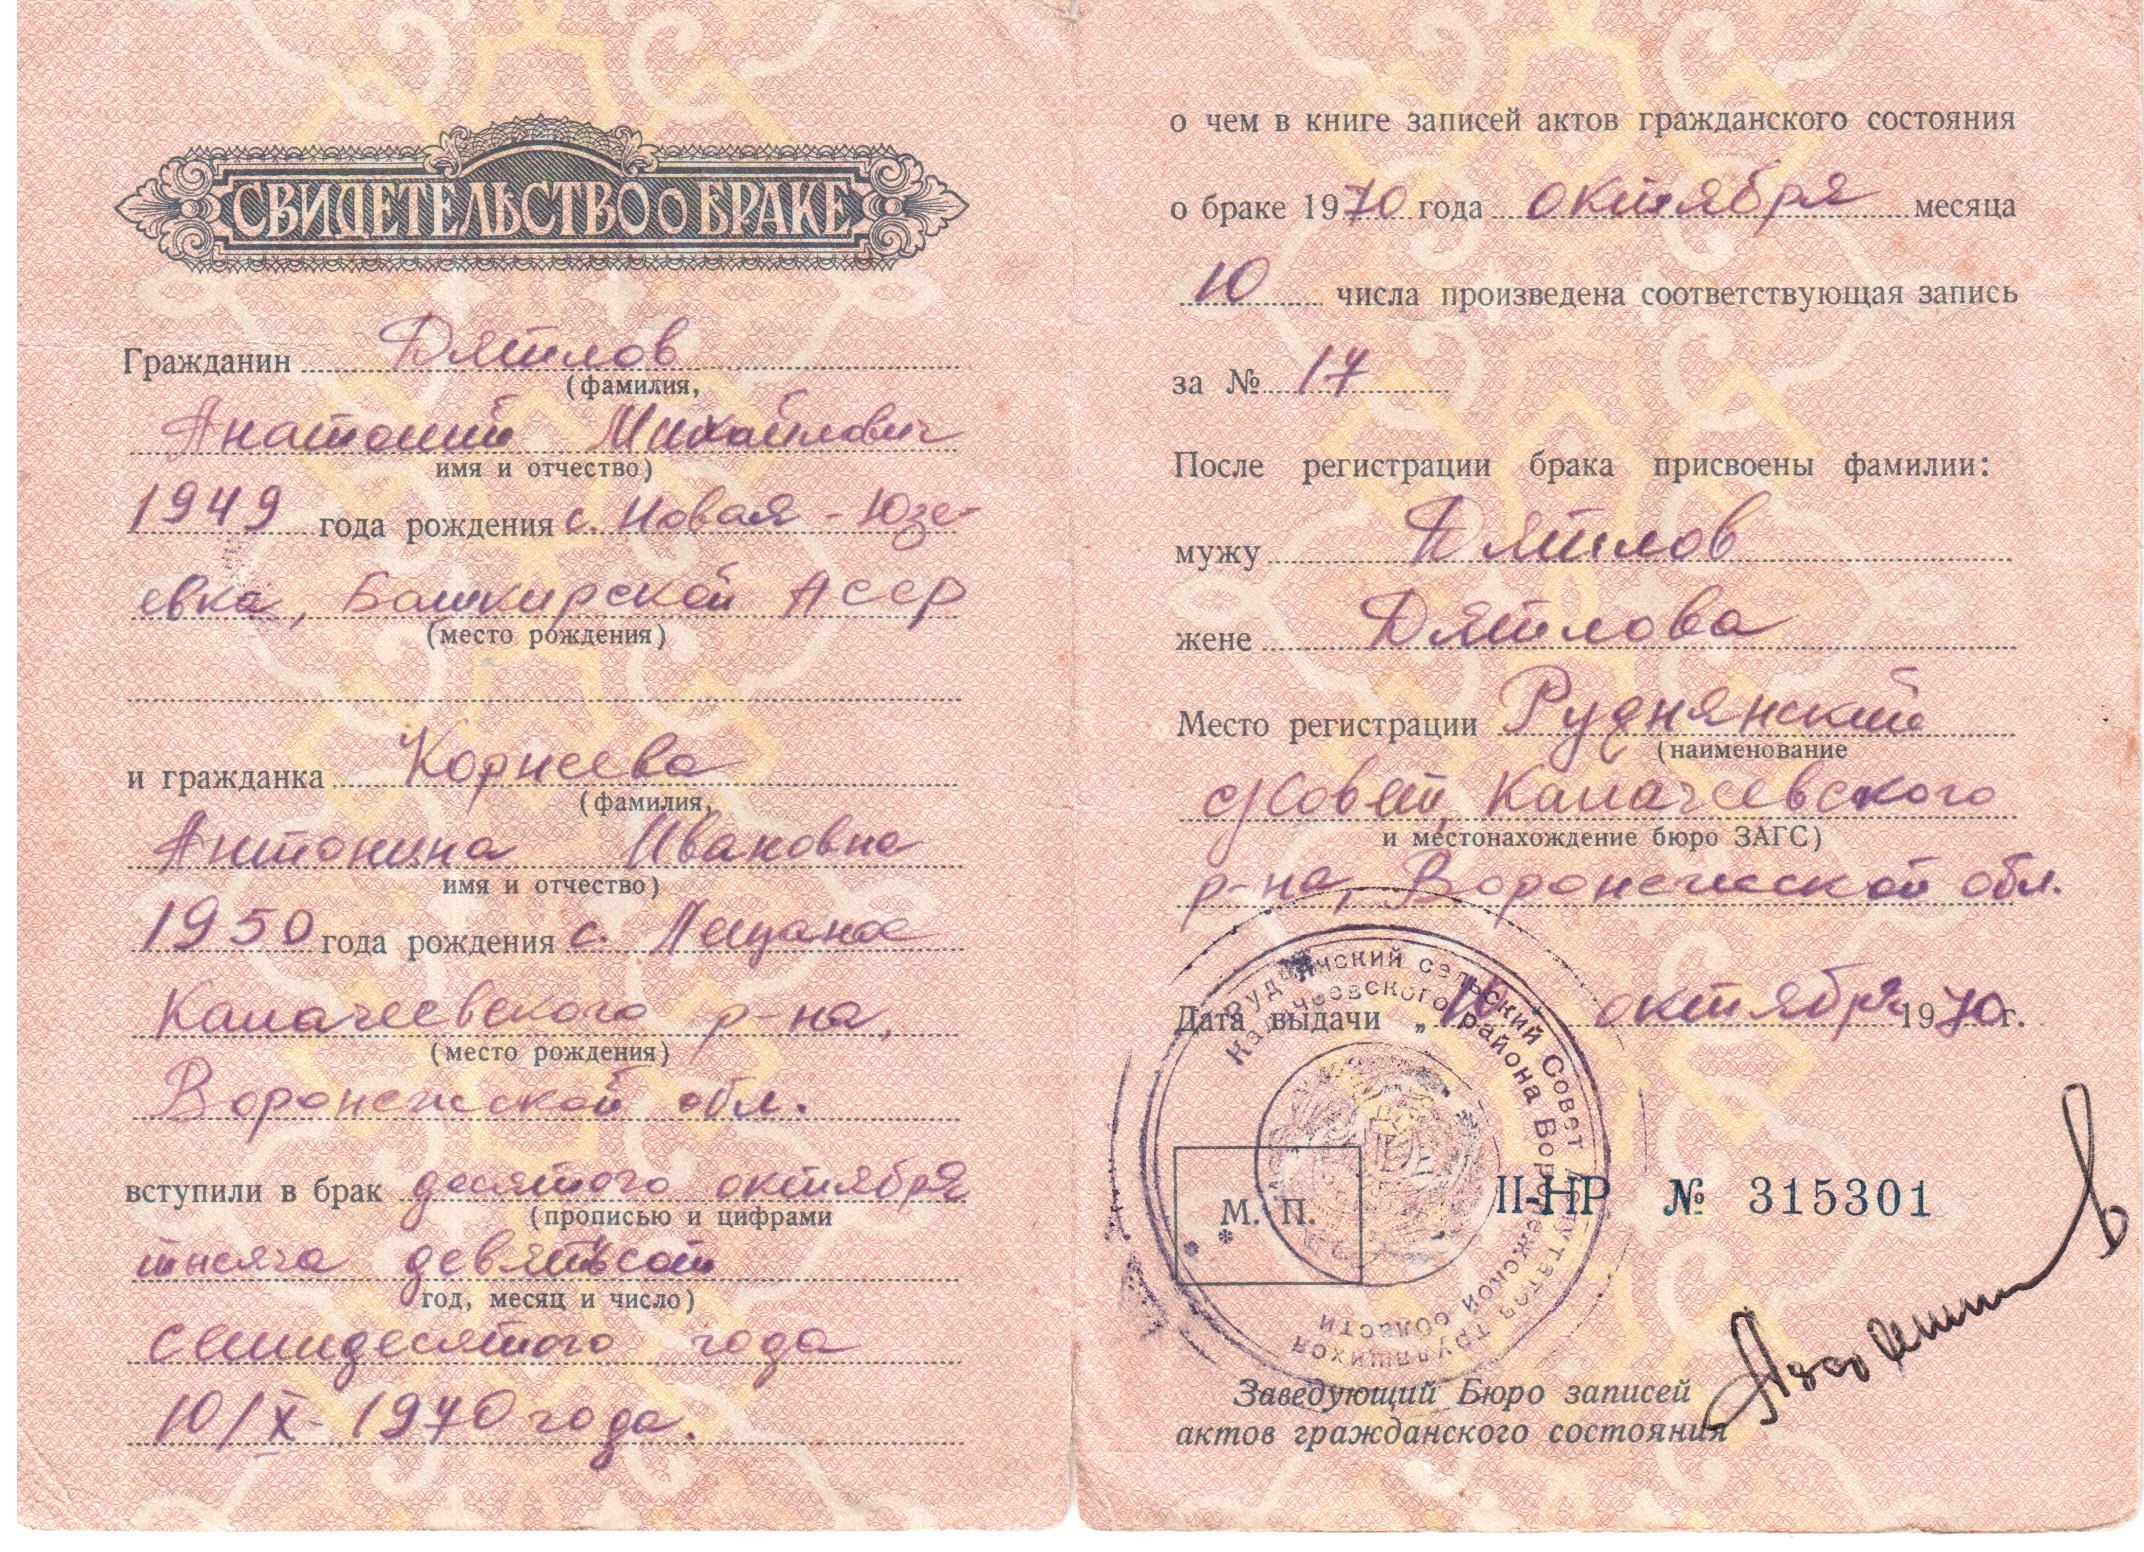 СВИДЕТЕЛЬСТВО О БРАКЕ
Гражданин Дятлов
(фамилия,
Анатолий Михайлович
имя и отчество)
1949 года рождения с. Новая-Юзе-
евка, Башкирской АССР
(место рождения)
и гражданка Корнеева
(фамилия,
Антонина Ивановна
имя и отчество)
1950 года рождения с. Пещаное
Калачеевского р-на,
(место рождения)
Воронежской обл.
вступили в брак десятого октября
(прописью и цифрами
тысяча девятьсот
год, месяц и число)
семидесятого года
10/X-1970 года.
о чем в книге записей актов гражданского состояния
о браке 1970 года октября месяца
10 числа произведена соответствующая запись
за № 17
После регистрации брака присвоены фамилии:
мужу Дятлов
жене Дятлова
Место регистрации Руднянский
(наименование
с/Совет, Калачеевского
и местонахождение бюро ЗАГС)
р-на, Воронежской обл.
Дата выдачи „ октября 1970 г.
Руднянский сельский Совет депутатов трудящихся
Калачеевского района Воронежской области
М. П.
II-НР № 315301
Заведующий Бюро записей
актов гражданского состояния